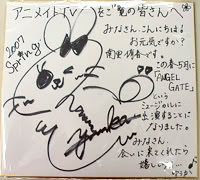 アニメイトTVをご覧の皆さんへ
2007
Spring
みなさん、こんにちは。
お元気ですか?
この春5月に
「ANGEL
GATE」
という
ミュージカルに
出演することに
なりました。
みなさん
会いに来てくれたら
嬉しい